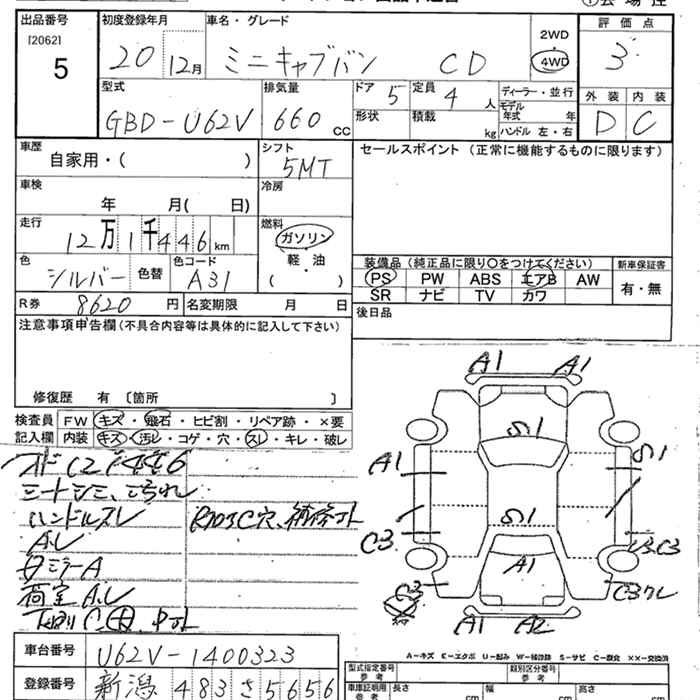 出品番号 初度登録年月 車名・グレード 評価点
[2062] 5 20 12月 ミニキャブバン CD 2WD 4WD 3
型式 排気量 ドア 5 定員 4 人 ディーラー・並行 外装 内装
GBD-U62V 660 cc 形状 積載 kg モデル年式 年 D C
ハンドル 左・右
車歴 自家用・( ) シフト 5MT セールスポイント (正常に機能するものに限ります)
車検 年 月( 日) 冷房
走行 12万1千446km 燃料 ガソリン 軽・油 ( )
色 シルバー 色替 色コード A31
装備品 (純正品に限り○をつけてください) 新車保証書
PS PW ABS エアB AW 有・無
SR ナビ TV カワ
R券 8620 円 名変期限 月 日 後日品
注意事項申告欄(不具合内容等は具体的に記入して下さい)
修復歴 有 〔箇所 〕
検査員 FW キズ・飛石・ヒビ割・リペア跡・×要
記入欄 内装 キズ・汚れ・コゲ・穴・スレ・キレ・破レ
シートシミ、汚れ
ハンドルスレ
A1 A1
S1
A1 S1
S1
C3 C3
A1
C3
A1 A2
A-キズ E-エクボ U-凹み W-補修跡 S-サビ C-腐食 XX-交換済
車台番号 U62V-1400323
登録番号 新潟 483 さ 5656
型式指定番号 参考 類別区分番号 参考
車庫証明用 参考 長さ cm 幅 cm 高さ cm